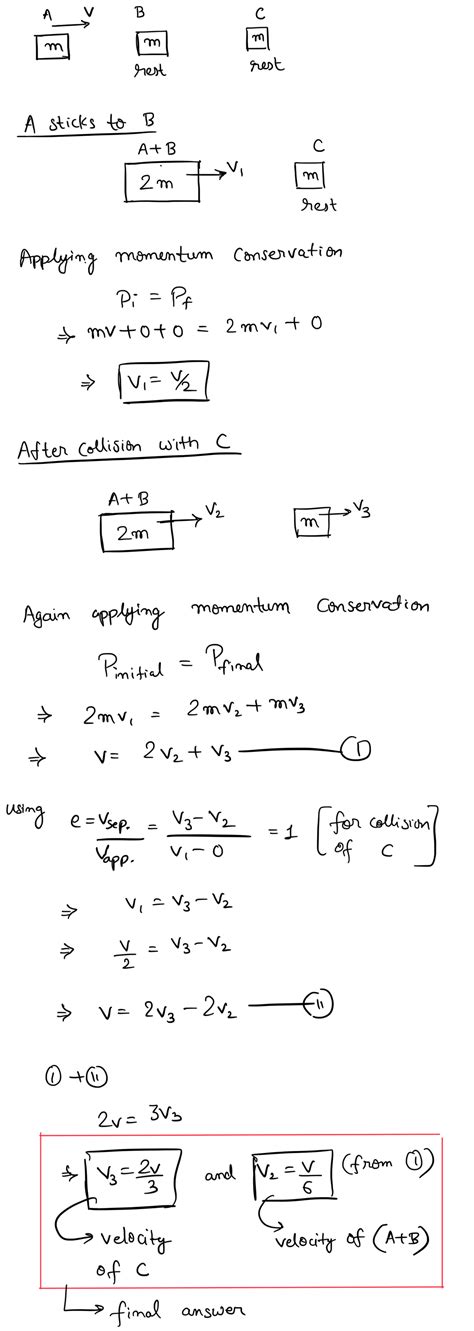 A V B C
m m m
rest rest
A sticks to B
A+B C
2m V₁ m
rest
Applying momentum conservation
Pi = Pf
⇒ mv+0+0 = 2mv₁ + 0
⇒ V₁ = V/2
After collision with C
A+B
2m V₂ m V₃
Again applying momentum conservation
Pinitial = Pfinal
⇒ 2mv₁ = 2mv₂ + mv₃
⇒ V = 2V₂ + V₃ — (I)
using e = Vsep./Vapp. = (V₃ − V₂)/(V₁ − 0) = 1 [for collision of C]
⇒ V₁ = V₃ − V₂
⇒ V/2 = V₃ − V₂
⇒ V = 2V₃ − 2V₂ — (II)
(I) + (II)
2V = 3V₃
⇒ V₃ = 2V/3 and V₂ = V/6 (from (I))
velocity of C velocity of (A+B)
final answer